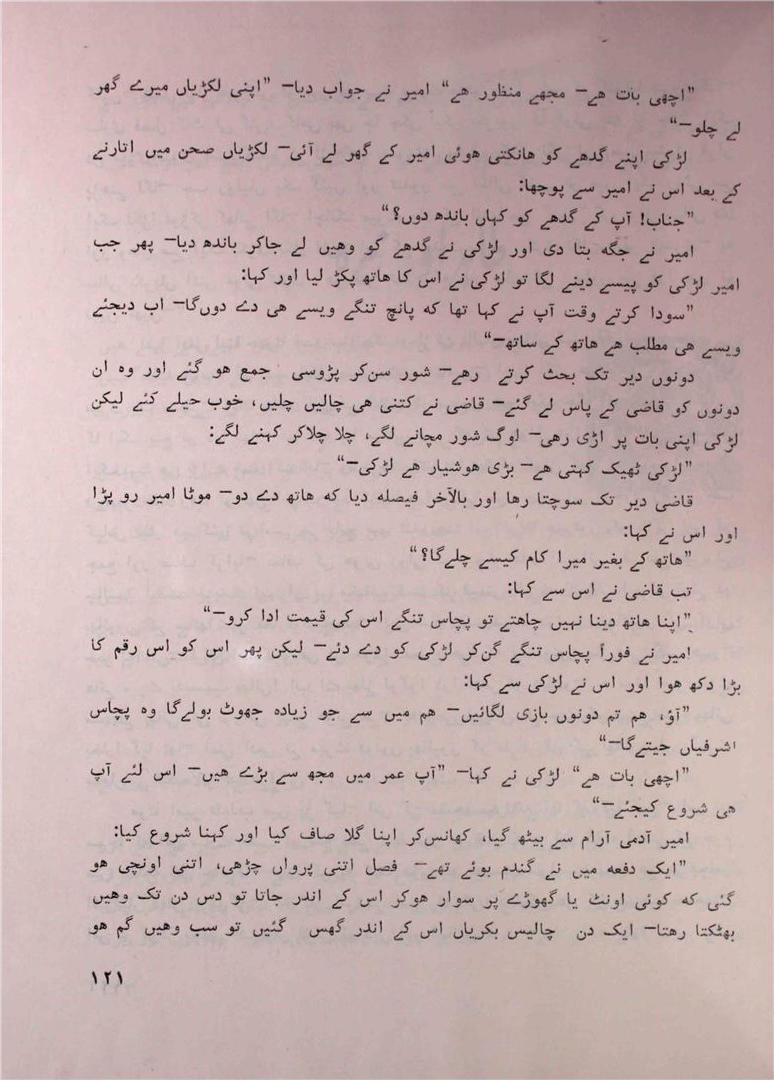 ”اچھی بات ھے— مجھے منظور ھے“ امیر نے جواب دیا— ”اپنی لکڑیاں میرے گھر
لے چلو—“
لڑکی اپنے گدھے کو ھانکتی ھوئی امیر کے گھر لے آئی— لکڑیاں صحن میں اتارنے
کے بعد اس نے امیر سے پوچھا:
”جناب! آپ کے گدھے کو کہاں باندھ دوں؟“
امیر نے جگہ بتا دی اور لڑکی نے گدھے کو وھیں لے جاکر باندھ دیا— پھر جب
امیر لڑکی کو پیسے دینے لگا تو لڑکی نے اس کا ھاتھ پکڑ لیا اور کہا:
”سودا کرتے وقت آپ نے کہا تھا کہ پانچ تنگے ویسے ھی دے دوں‌گا— اب دیجئے
ویسے ھی مطلب ھے ھاتھ کے ساتھ—“
دونوں دیر تک بحث کرتے رھے— شور سن‌کر پڑوسی جمع ھو گئے اور وہ ان
دونوں کو قاضی کے پاس لے گئے— قاضی نے کتنی ھی چالیں چلیں، خوب حیلے کئے لیکن
لڑکی اپنی بات پر اڑی رھی— لوگ شور مچانے لگے، چلا چلاکر کہنے لگے:
”لڑکی ٹھیک کہتی ھے— بڑی ھوشیار ھے لڑکی—“
قاضی دیر تک سوچتا رھا اور بالآخر فیصلہ دیا کہ ھاتھ دے دو— موٹا امیر رو پڑا
اور اس نے کہا:
”ھاتھ کے بغیر میرا کام کیسے چلے‌گا؟“
تب قاضی نے اس سے کہا:
”اپنا ھاتھ دینا نہیں چاھتے تو پچاس تنگے اس کی قیمت ادا کرو—“
امیر نے فوراً پچاس تنگے گن‌کر لڑکی کو دے دئے— لیکن پھر اس کو اس رقم کا
بڑا دکھ ھوا اور اس نے لڑکی سے کہا:
”آؤ، ھم تم دونوں بازی لگائیں— ھم میں سے جو زیادہ جھوٹ بولے‌گا وہ پچاس
اشرفیاں جیتے‌گا—“
”اچھی بات ھے“ لڑکی نے کہا— ”آپ عمر میں مجھ سے بڑے ھیں— اس لئے آپ
ھی شروع کیجئے—“
امیر آدمی آرام سے بیٹھ گیا، کھانس‌کر اپنا گلا صاف کیا اور کہنا شروع کیا:
”ایک دفعہ میں نے گندم بوئے تھے— فصل اتنی پرواں چڑھی، اتنی اونچی ھو
گئی کہ کوئی اونٹ یا گھوڑے پر سوار ھوکر اس کے اندر جاتا تو دس دن تک وھیں
بھٹکتا رھتا— ایک دن چالیس بکریاں اس کے اندر گھس گئیں تو سب وھیں گم ھو
۱۲۱